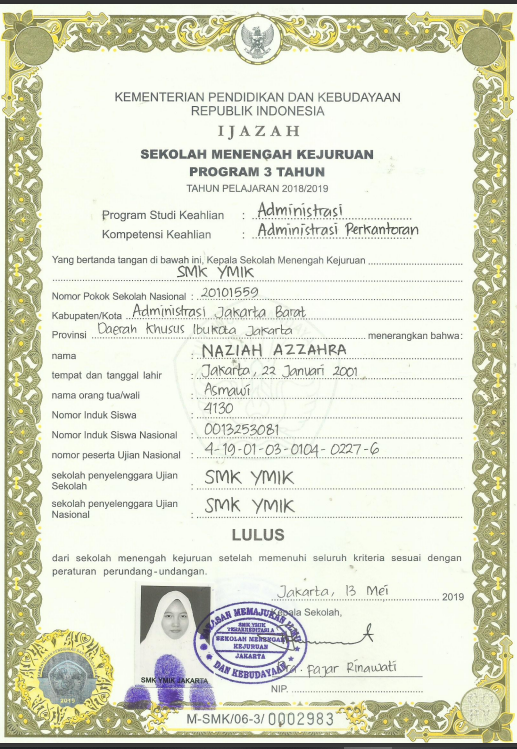 KEMENTERIAN PENDIDIKAN DAN KEBUDAYAAN
REPUBLIK INDONESIA
IJAZAH
SEKOLAH MENENGAH KEJURUAN
PROGRAM 3 TAHUN
TAHUN PELAJARAN 2018/2019
Program Studi Keahlian : Administrasi
Kompetensi Keahlian : Administrasi Perkantoran
Yang bertanda tangan di bawah ini, Kepala Sekolah Menengah Kejuruan
SMK YMIK
Nomor Pokok Sekolah Nasional : 20101559
Kabupaten/Kota Administrasi Jakarta Barat
Provinsi Daerah Khusus Ibukota Jakarta menerangkan bahwa:
nama : NAZIAH AZZAHRA
tempat dan tanggal lahir : Jakarta, 22 Januari 2001
nama orang tua/wali : Asmawi
Nomor Induk Siswa : 4130
Nomor Induk Siswa Nasional : 0013253081
nomor peserta Ujian Nasional : 4-19-01-03-0104-0227-6
sekolah penyelenggara Ujian Sekolah : SMK YMIK
sekolah penyelenggara Ujian Nasional : SMK YMIK
LULUS
dari sekolah menengah kejuruan setelah memenuhi seluruh kriteria sesuai dengan
peraturan perundang-undangan.
Jakarta, 13 Mei 2019
Kepala Sekolah,
YAYASAN MEMAJUKAN ILMU
SMK YMIK
SEKOLAH MENENGAH
KEJURUAN
JAKARTA
DAN KEBUDAYAAN
Fajar Rinawati
NIP.
SMK YMIK JAKARTA
2019
M-SMK/06-3/ 0002983